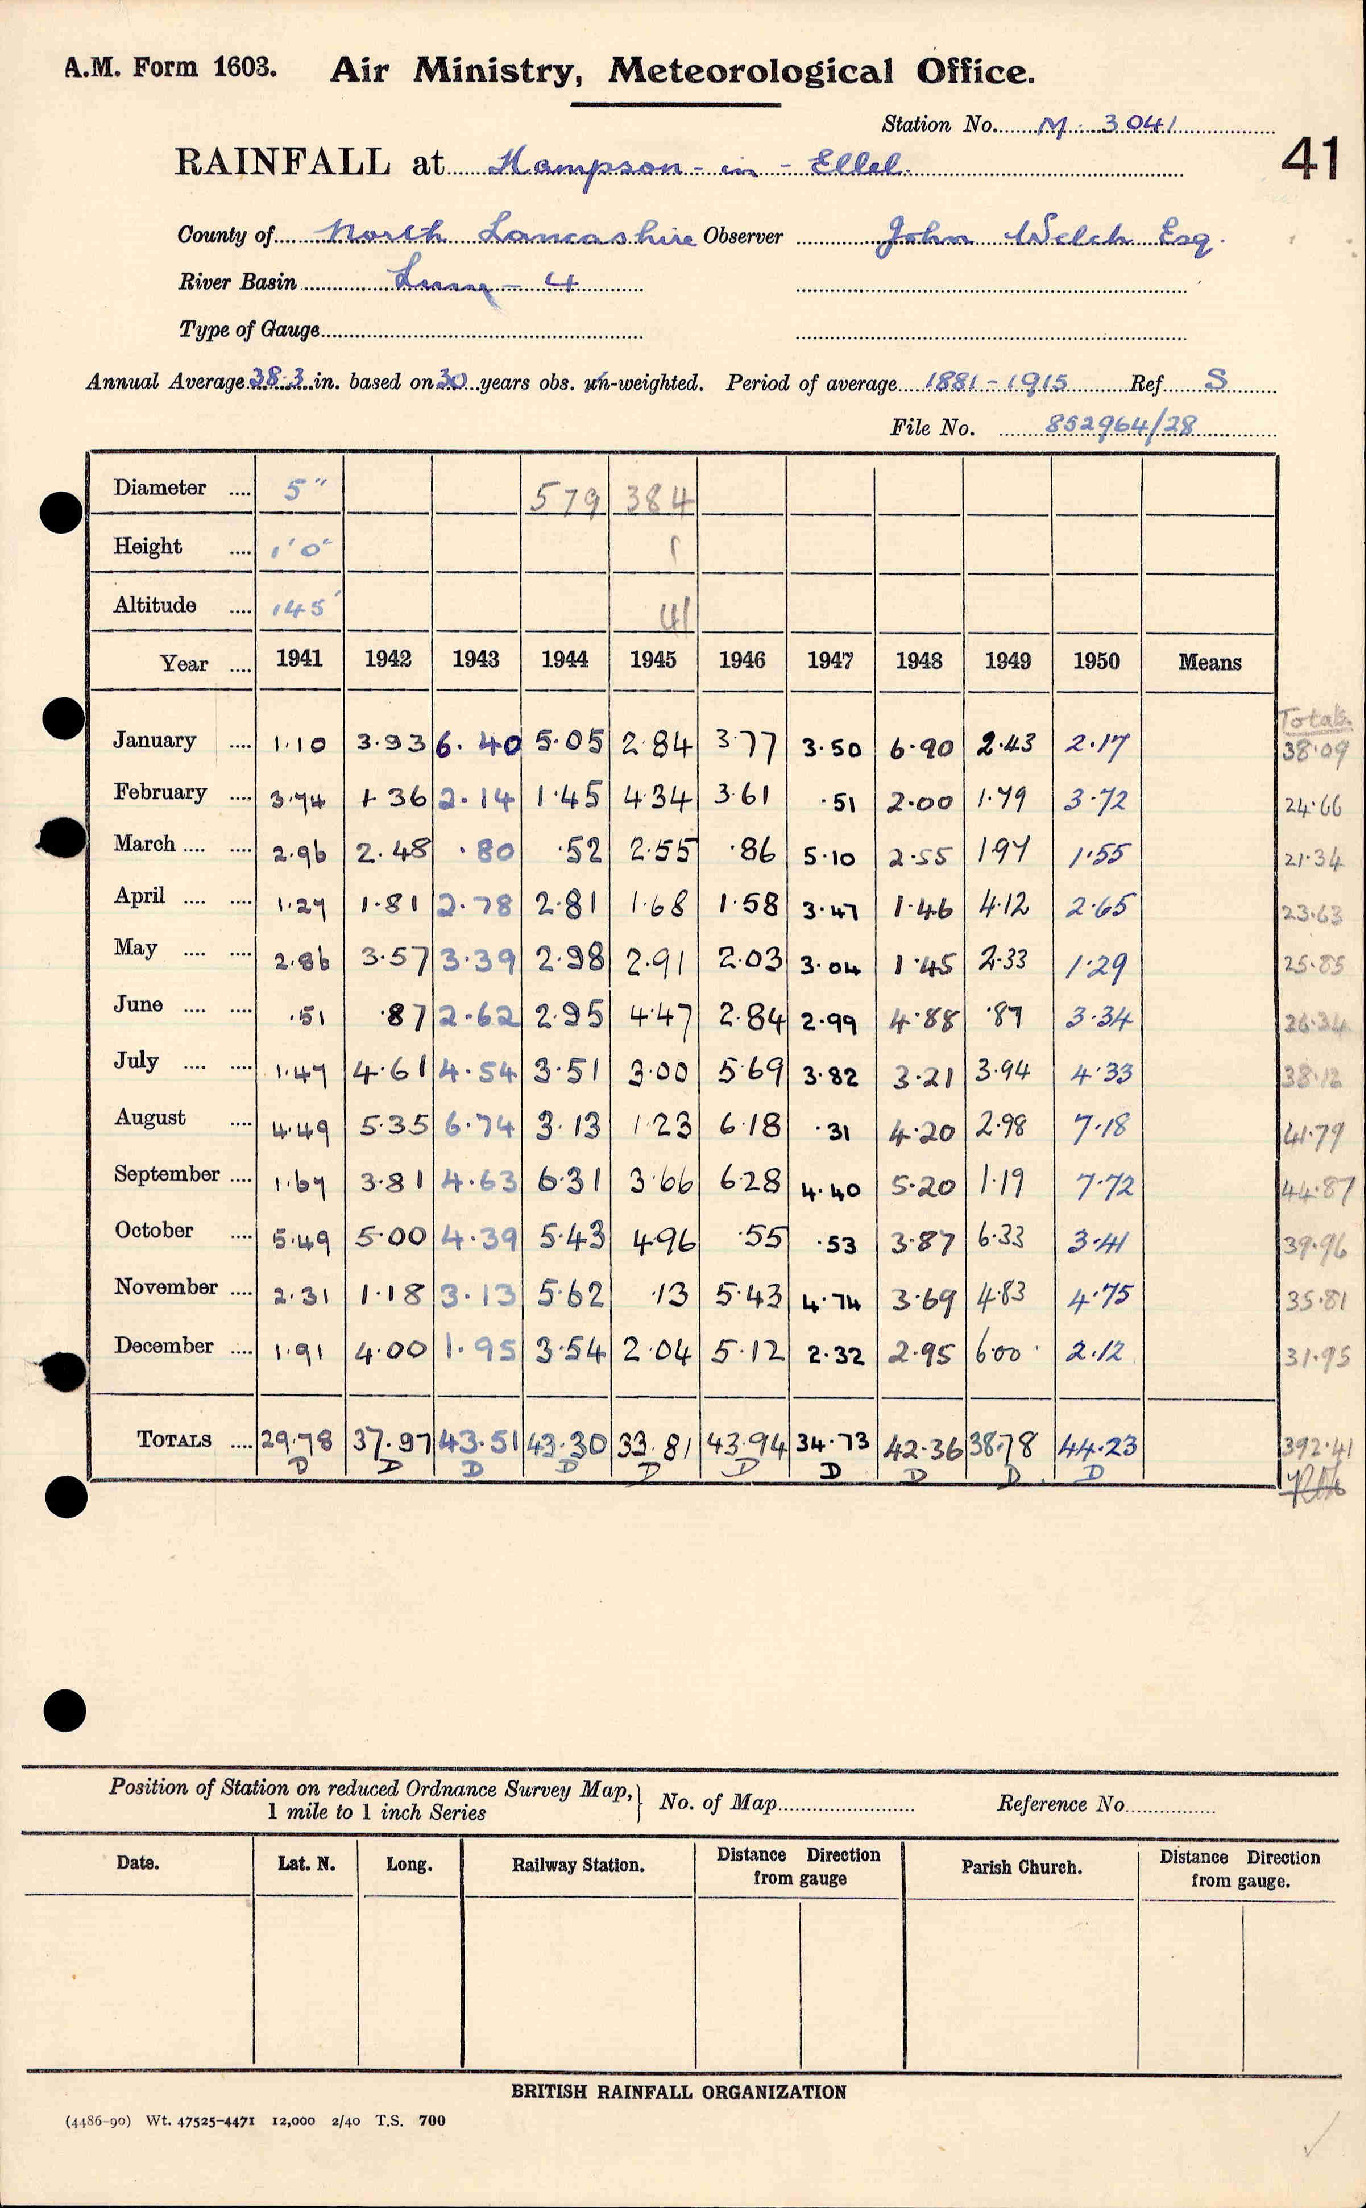 A.M. Form 1603. Air Ministry, Meteorological Office.
Station No. M. 3041
41
RAINFALL at Hampson-in-Ellel.
County of North Lancashire Observer John Welch Esq.
River Basin Lune - 4
Type of Gauge
Annual Average 38.3 in. based on 30 years obs. un-weighted. Period of average 1881-1915 Ref S
File No. 852964/28
Diameter .... 5" 579 384
Height .... 1'0" 1
Altitude .... 145' 41
Year .... 1941 1942 1943 1944 1945 1946 1947 1948 1949 1950 Means
Totals
January .... 1.10 3.93 6.40 5.05 2.84 3.77 3.50 6.90 2.43 2.17 38.09
February .... 3.74 1.36 2.14 1.45 4.34 3.61 .51 2.00 1.79 3.72 24.66
March .... .... 2.96 2.48 .80 .52 2.55 .86 5.10 2.55 1.97 1.55 21.34
April .... .... 1.27 1.81 2.78 2.81 1.68 1.58 3.47 1.46 4.12 2.65 23.63
May .... .... 2.86 3.57 3.39 2.98 2.91 2.03 3.04 1.45 2.33 1.29 25.85
June .... .... .51 .87 2.62 2.95 4.47 2.84 2.99 4.88 .87 3.34 26.34
July .... .... 1.47 4.61 4.54 3.51 3.00 5.69 3.82 3.21 3.94 4.33 38.12
August .... 4.49 5.35 6.74 3.13 1.23 6.18 .31 4.20 2.98 7.18 41.79
September .... 1.67 3.81 4.63 6.31 3.66 6.28 4.40 5.20 1.19 7.72 44.87
October .... 5.49 5.00 4.39 5.43 4.96 .55 .53 3.87 6.33 3.41 39.96
November .... 2.31 1.18 3.13 5.62 .13 5.43 4.74 3.69 4.83 4.75 35.81
December .... 1.91 4.00 1.95 3.54 2.04 5.12 2.32 2.95 6.00 2.12 31.95
TOTALS .... 29.78 37.97 43.51 43.30 33.81 43.94 34.73 42.36 38.78 44.23 392.41
D D D D D D D D D D
Position of Station on reduced Ordnance Survey Map, 1 mile to 1 inch Series } No. of Map Reference No.
Date. Lat. N. Long. Railway Station. Distance Direction from gauge Parish Church. Distance Direction from gauge.
BRITISH RAINFALL ORGANIZATION
(4486-90) Wt. 47525-4471 12,000 2/40 T.S. 700